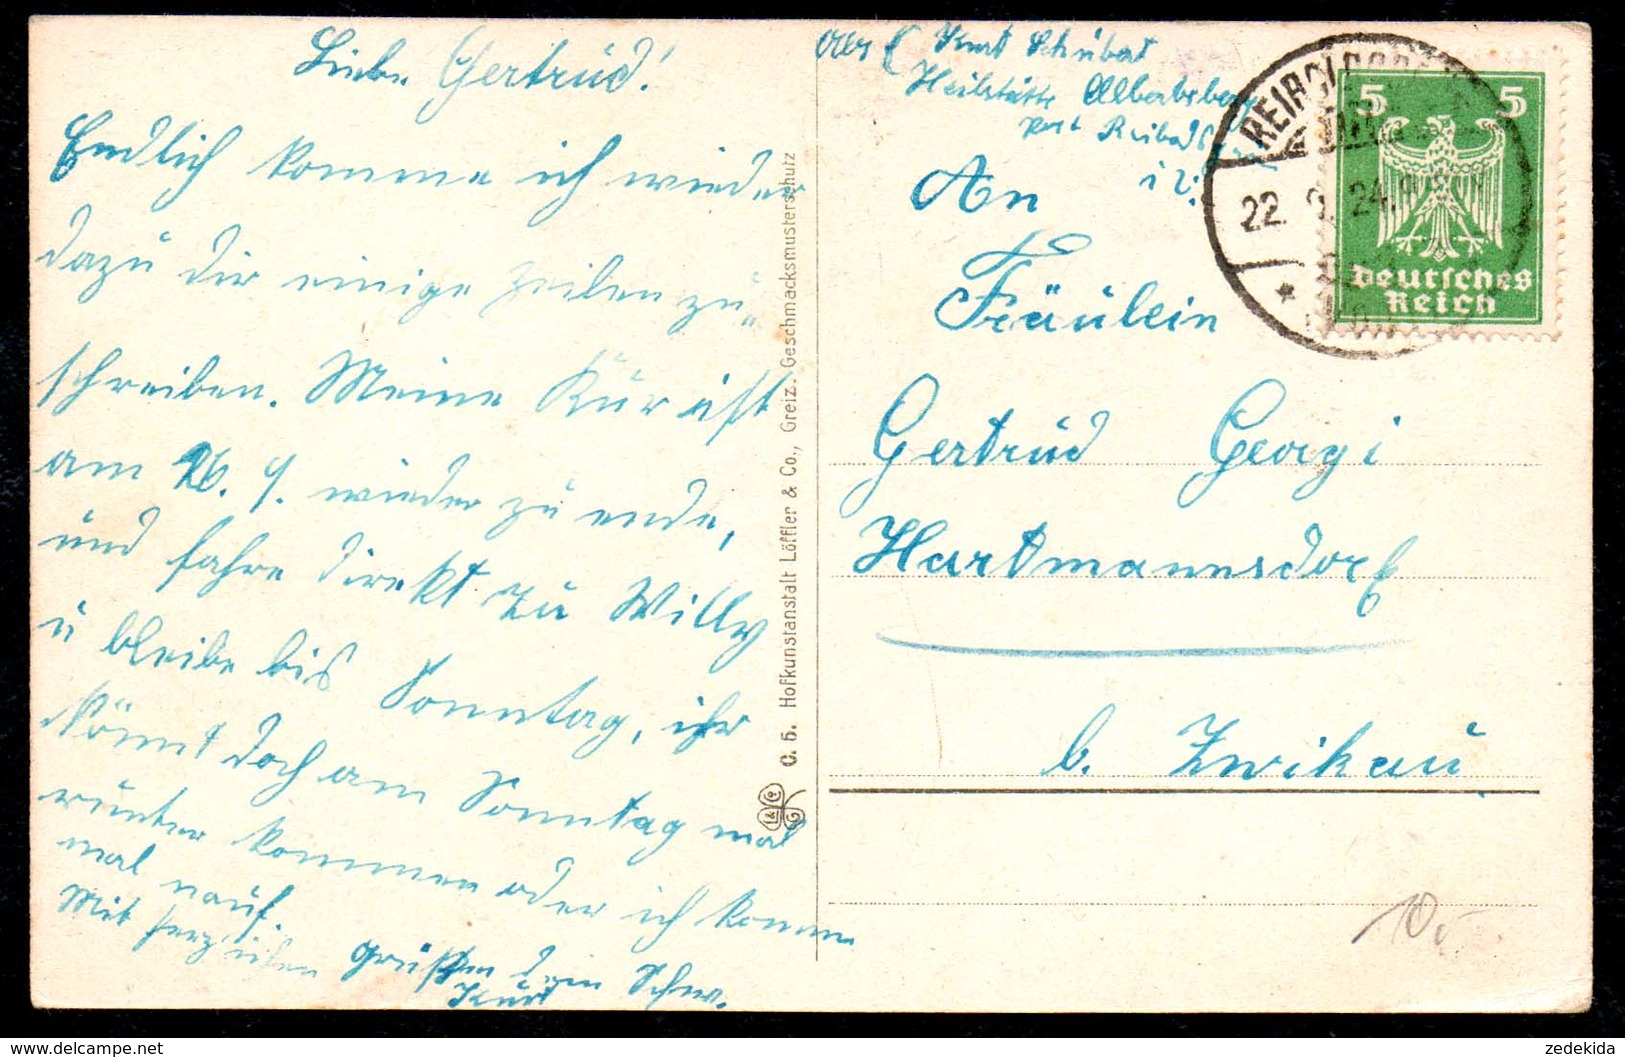 Liebe Gertrud!
Endlich komme ich wieder
dazu dir einige Zeilen zu
schreiben. Meine Kur ist
am 26. 9. wieder zu ende,
und fahre direkt zu Willy
u bleibe bis Sonntag, ihr
könnt doch am Sonntag mal
runter kommen oder ich komme
mal nauf.
Mit herzlichen Grüßen dein Schw.
Kurt
O. H. Hofkunstanstalt Löffler & Co., Greiz. Geschmacksmusterschutz
L & C G
Abs Kurt Schubert
Heilstätte Albertsberg
Post
i V.
An
Fräulein
Gertrud Georgi
Hartmannsdorf
b. Zwikau
5 5
Deutsches
Reich
22. 9. 24.
10,-
zedekida